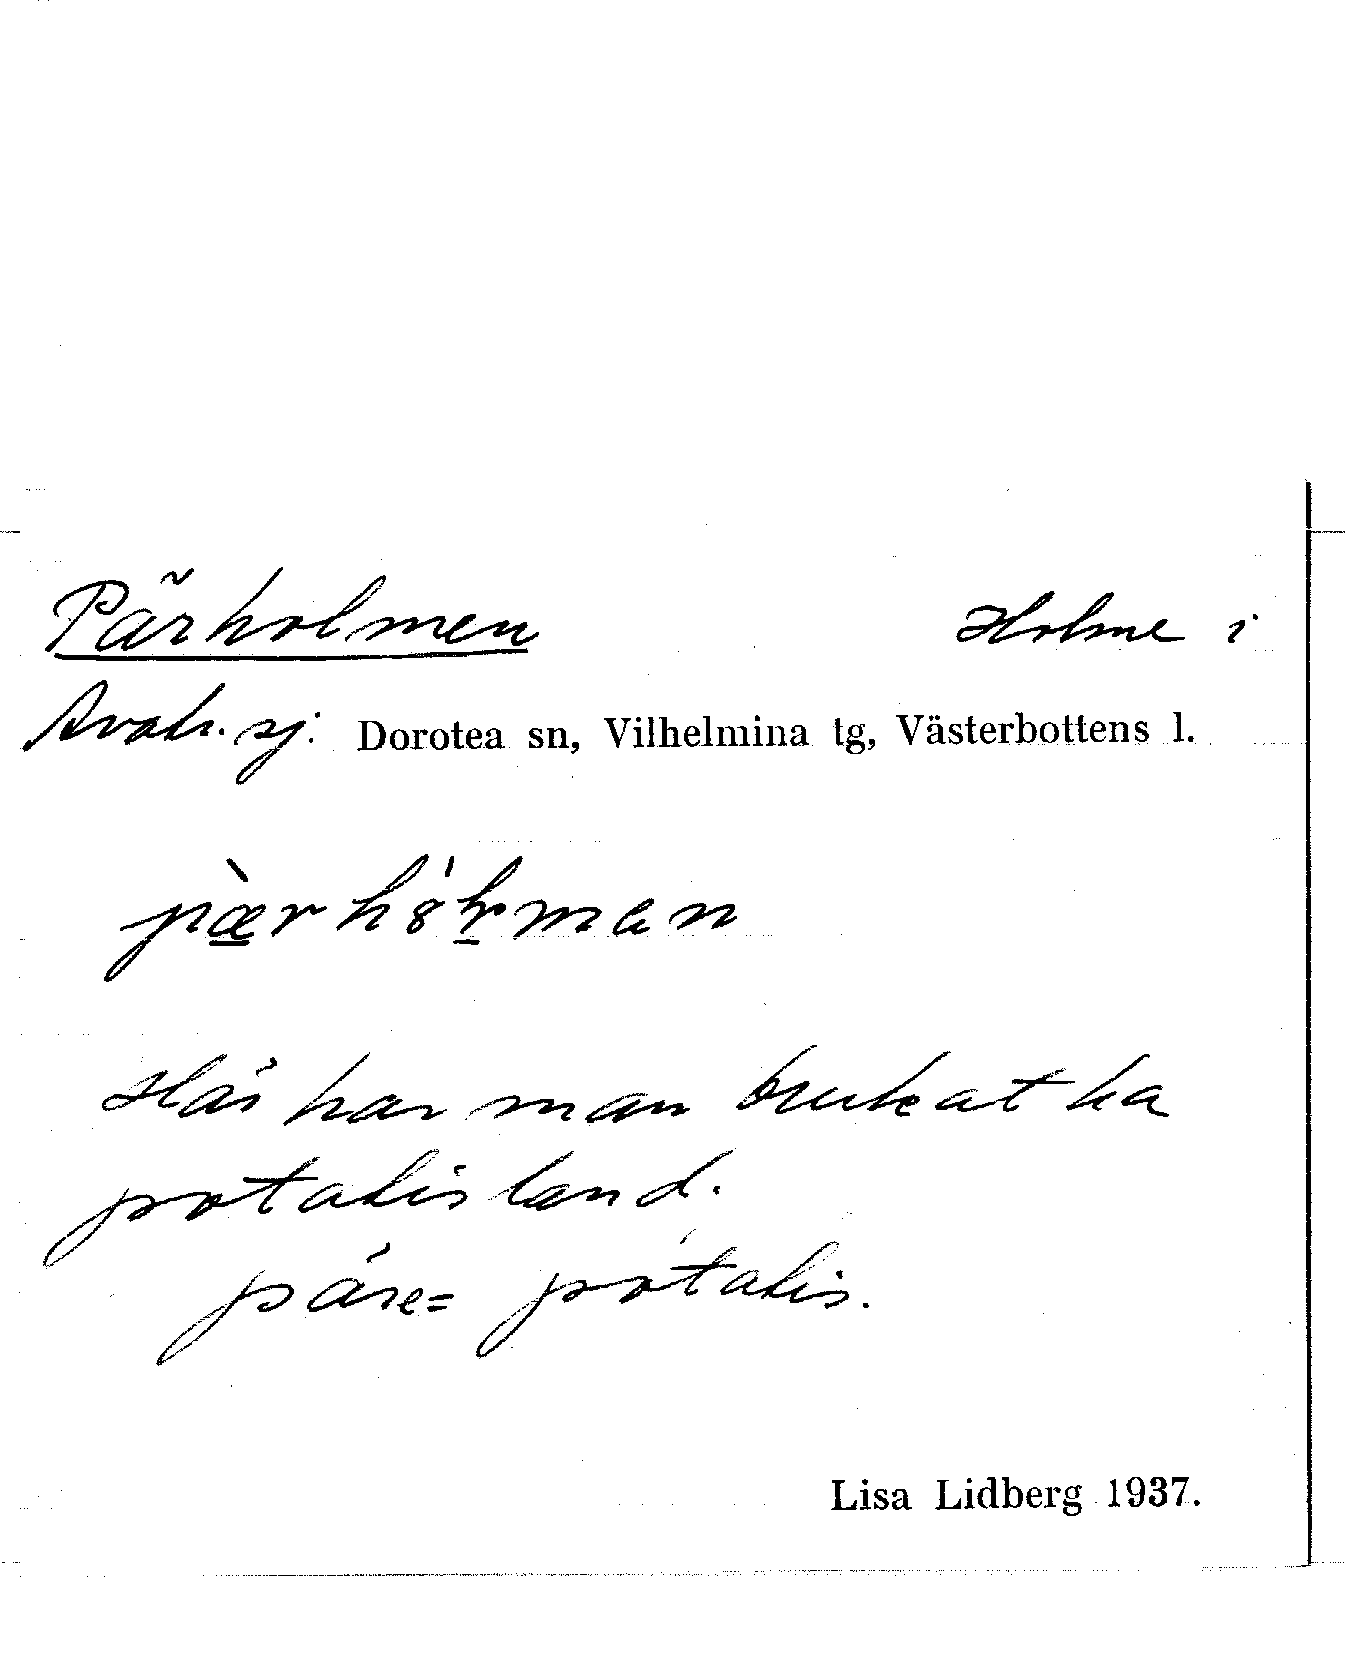 Pärholmen Holme i
Avatr. sj. Dorotea sn, Vilhelmina tg, Västerbottens l.
Här har man brukat ha
potatisland.
päre= potatis.
Lisa Lidberg 1937.